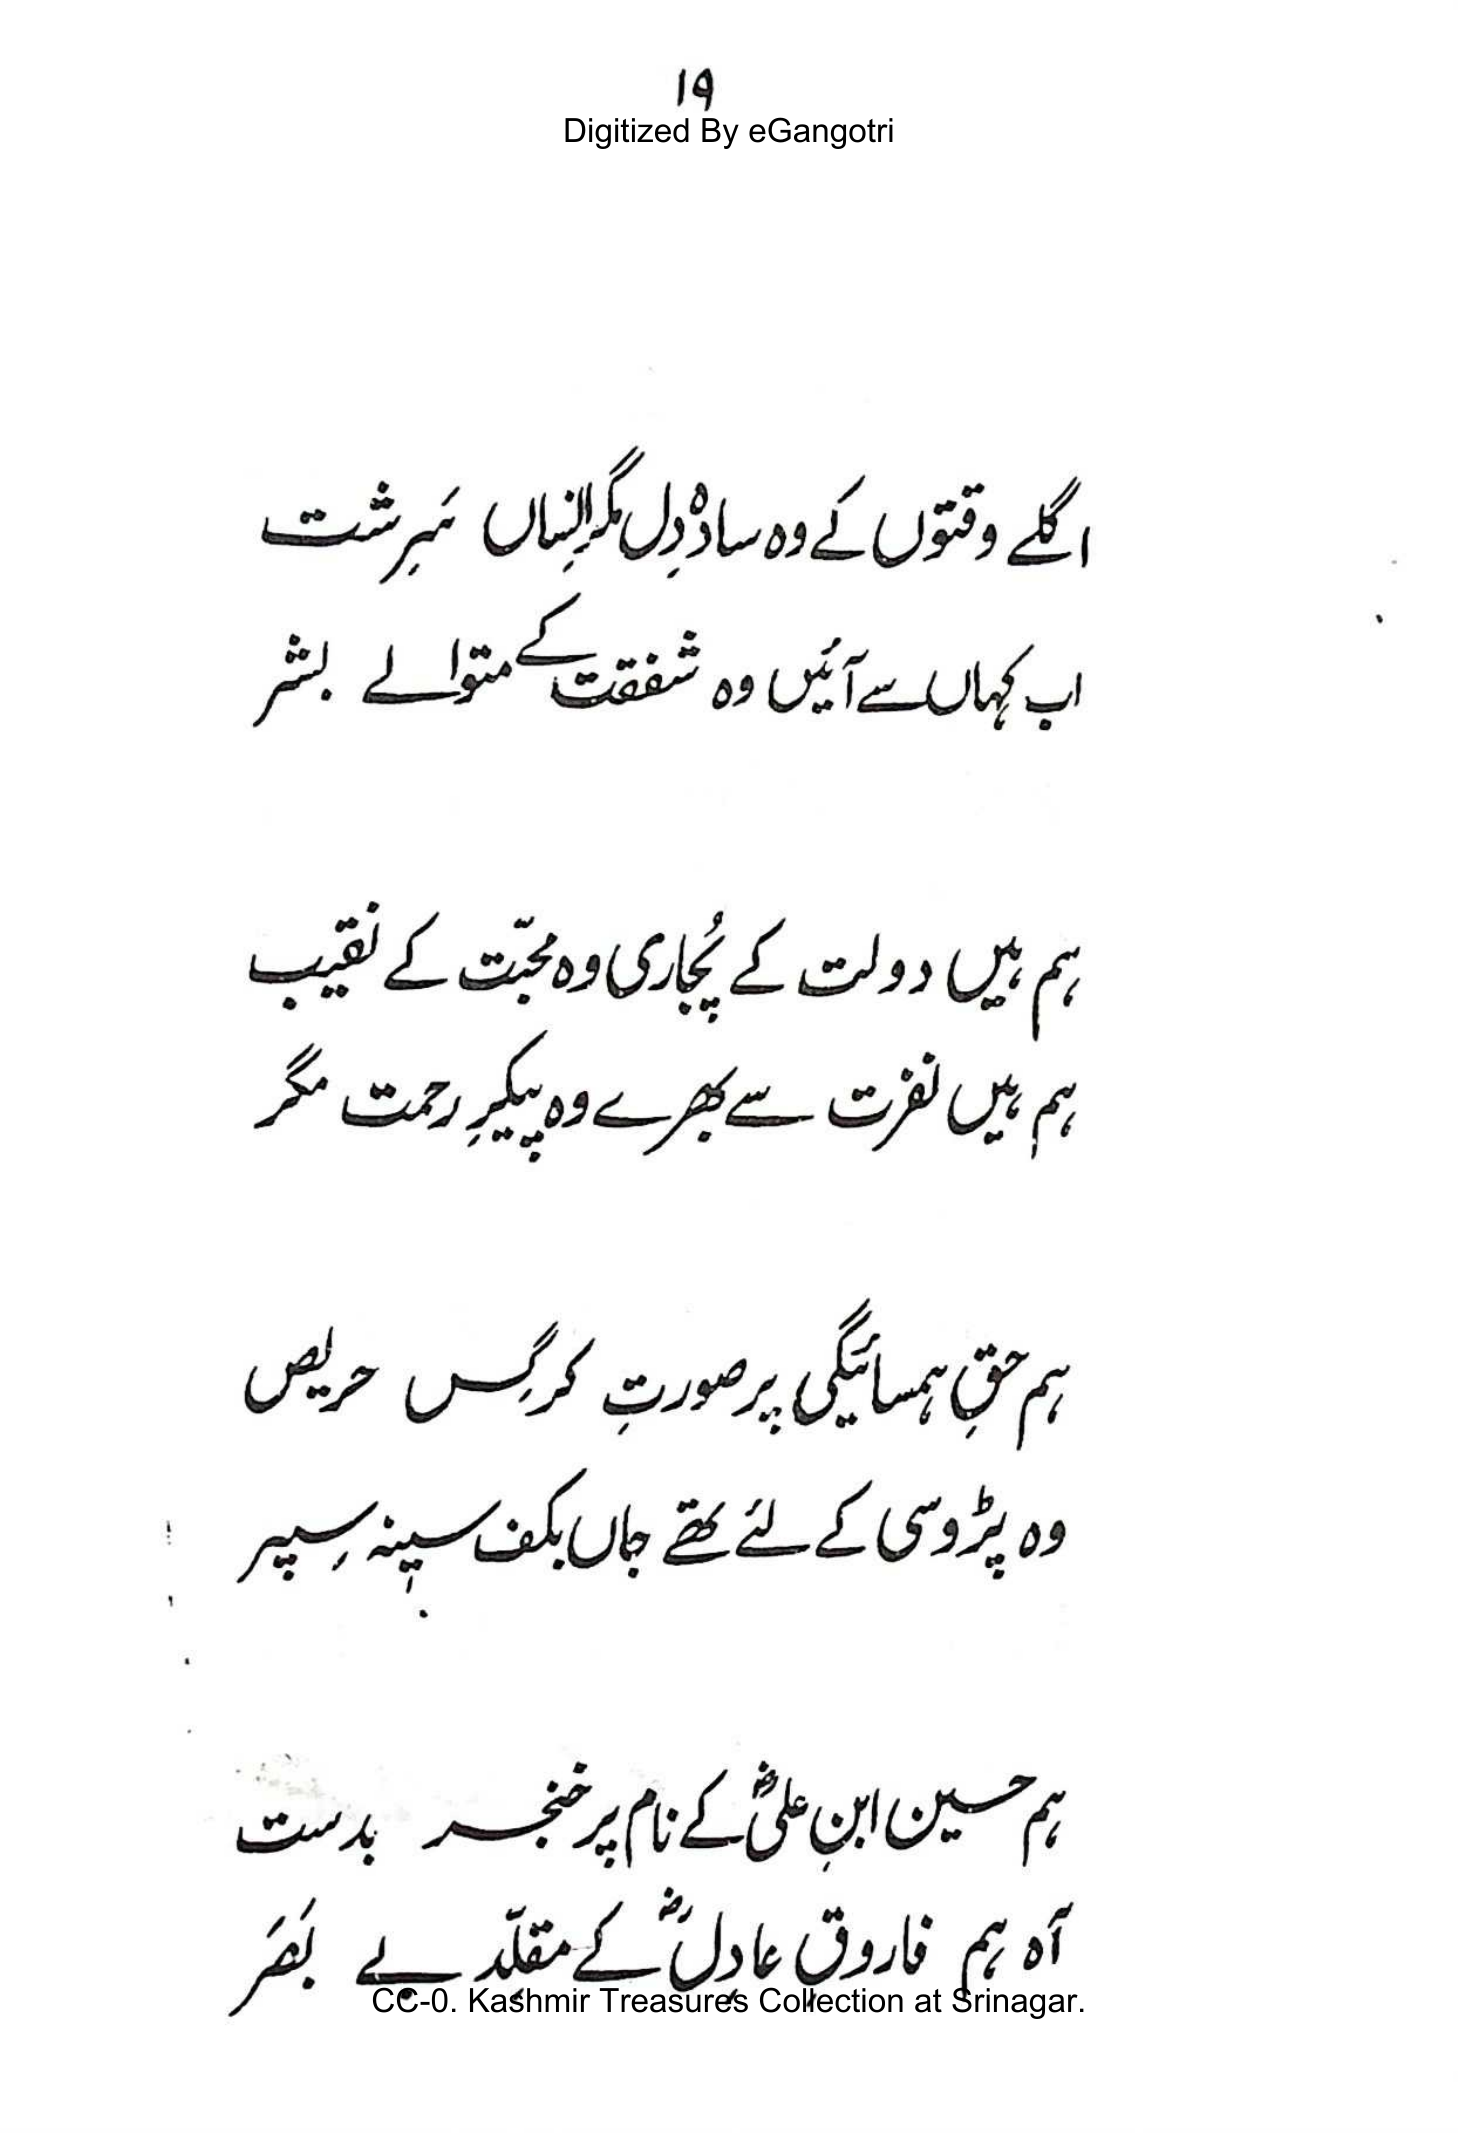 ۱۹
Digitized By eGangotri
اگلے وقتوں کے وہ سادہ دِل مگر اِنساں سَرِشت
اب کہاں سے آئیں وہ شفقت کے متوالے بشر
ہم ہیں دولت کے پُجاری وہ محبّت کے نقیب
ہم ہیں نفرت سے بھرے وہ پیکرِ رحمت مگر
ہم حقِ ہمسائیگی پر صورتِ کرگِس حریص
وہ پڑوسی کے لئے تھے جاں بکف سینہ سِپر
ہم حسین ابنِ علیؓ کے نام پر خنجر بدست
آہ ہم فاروقِ عادِلؓ کے مقلِّد بے بَصَر
CC-0. Kashmir Treasures Collection at Srinagar.